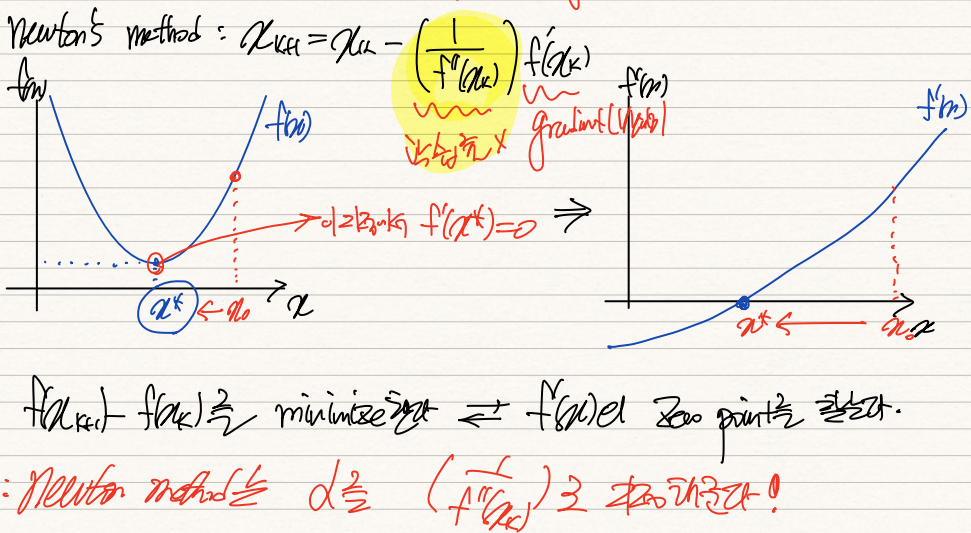 Newton's method : x_{k+1} = x_k - (1/f''(x_k)) f'(x_k)
f(x)
f(x)
학습률 x
gradient
f'(x)
f'(x)
이 지점에서 f'(x*)=0 ⇒
x* ← x_0 x
x* ← x_0 x
f(x_{k+1}) - f(x_k)를 minimize한다 ⇄ f'(x)의 zero point를 찾는다.
: Newton method는 α를 (1/f''(x_k))로 해준다!